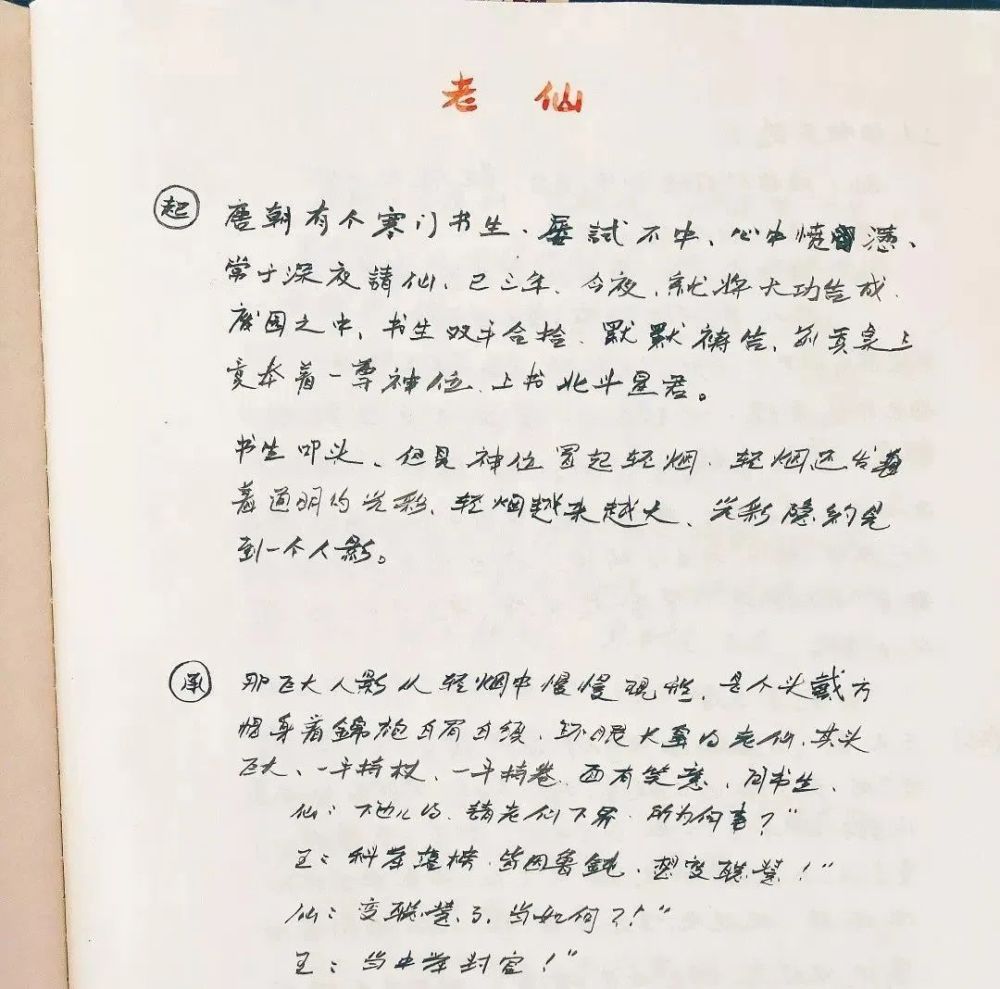 老 仙
起 唐朝有个寒门书生、屡試不中、心中愤懑、
常于深夜請仙、已三年、今夜、就将大功告成、
废园之中、书生双手合拾、默默祷告、前頁桌上
竟奉着一尊神位、上书北斗星君。
书生叩头、但見神位冒起轻烟、轻烟还发
着道明的光彩、轻烟越来越大、光彩隐约見
到一个人影。
承 那巨大人影从轻烟中慢慢现形、是个头戴方
帽身着錦袍白眉白须、环眼大鼻的老仙、其头
巨大、一手持杖、一手持卷、面有笑意、问书生、
仙：下边儿的、請老仙下界、所为何事？"
王：科举落榜、皆因魯鈍、想变聪慧！"
仙：变聪慧了、当如何？！"
王：当中举封官！"